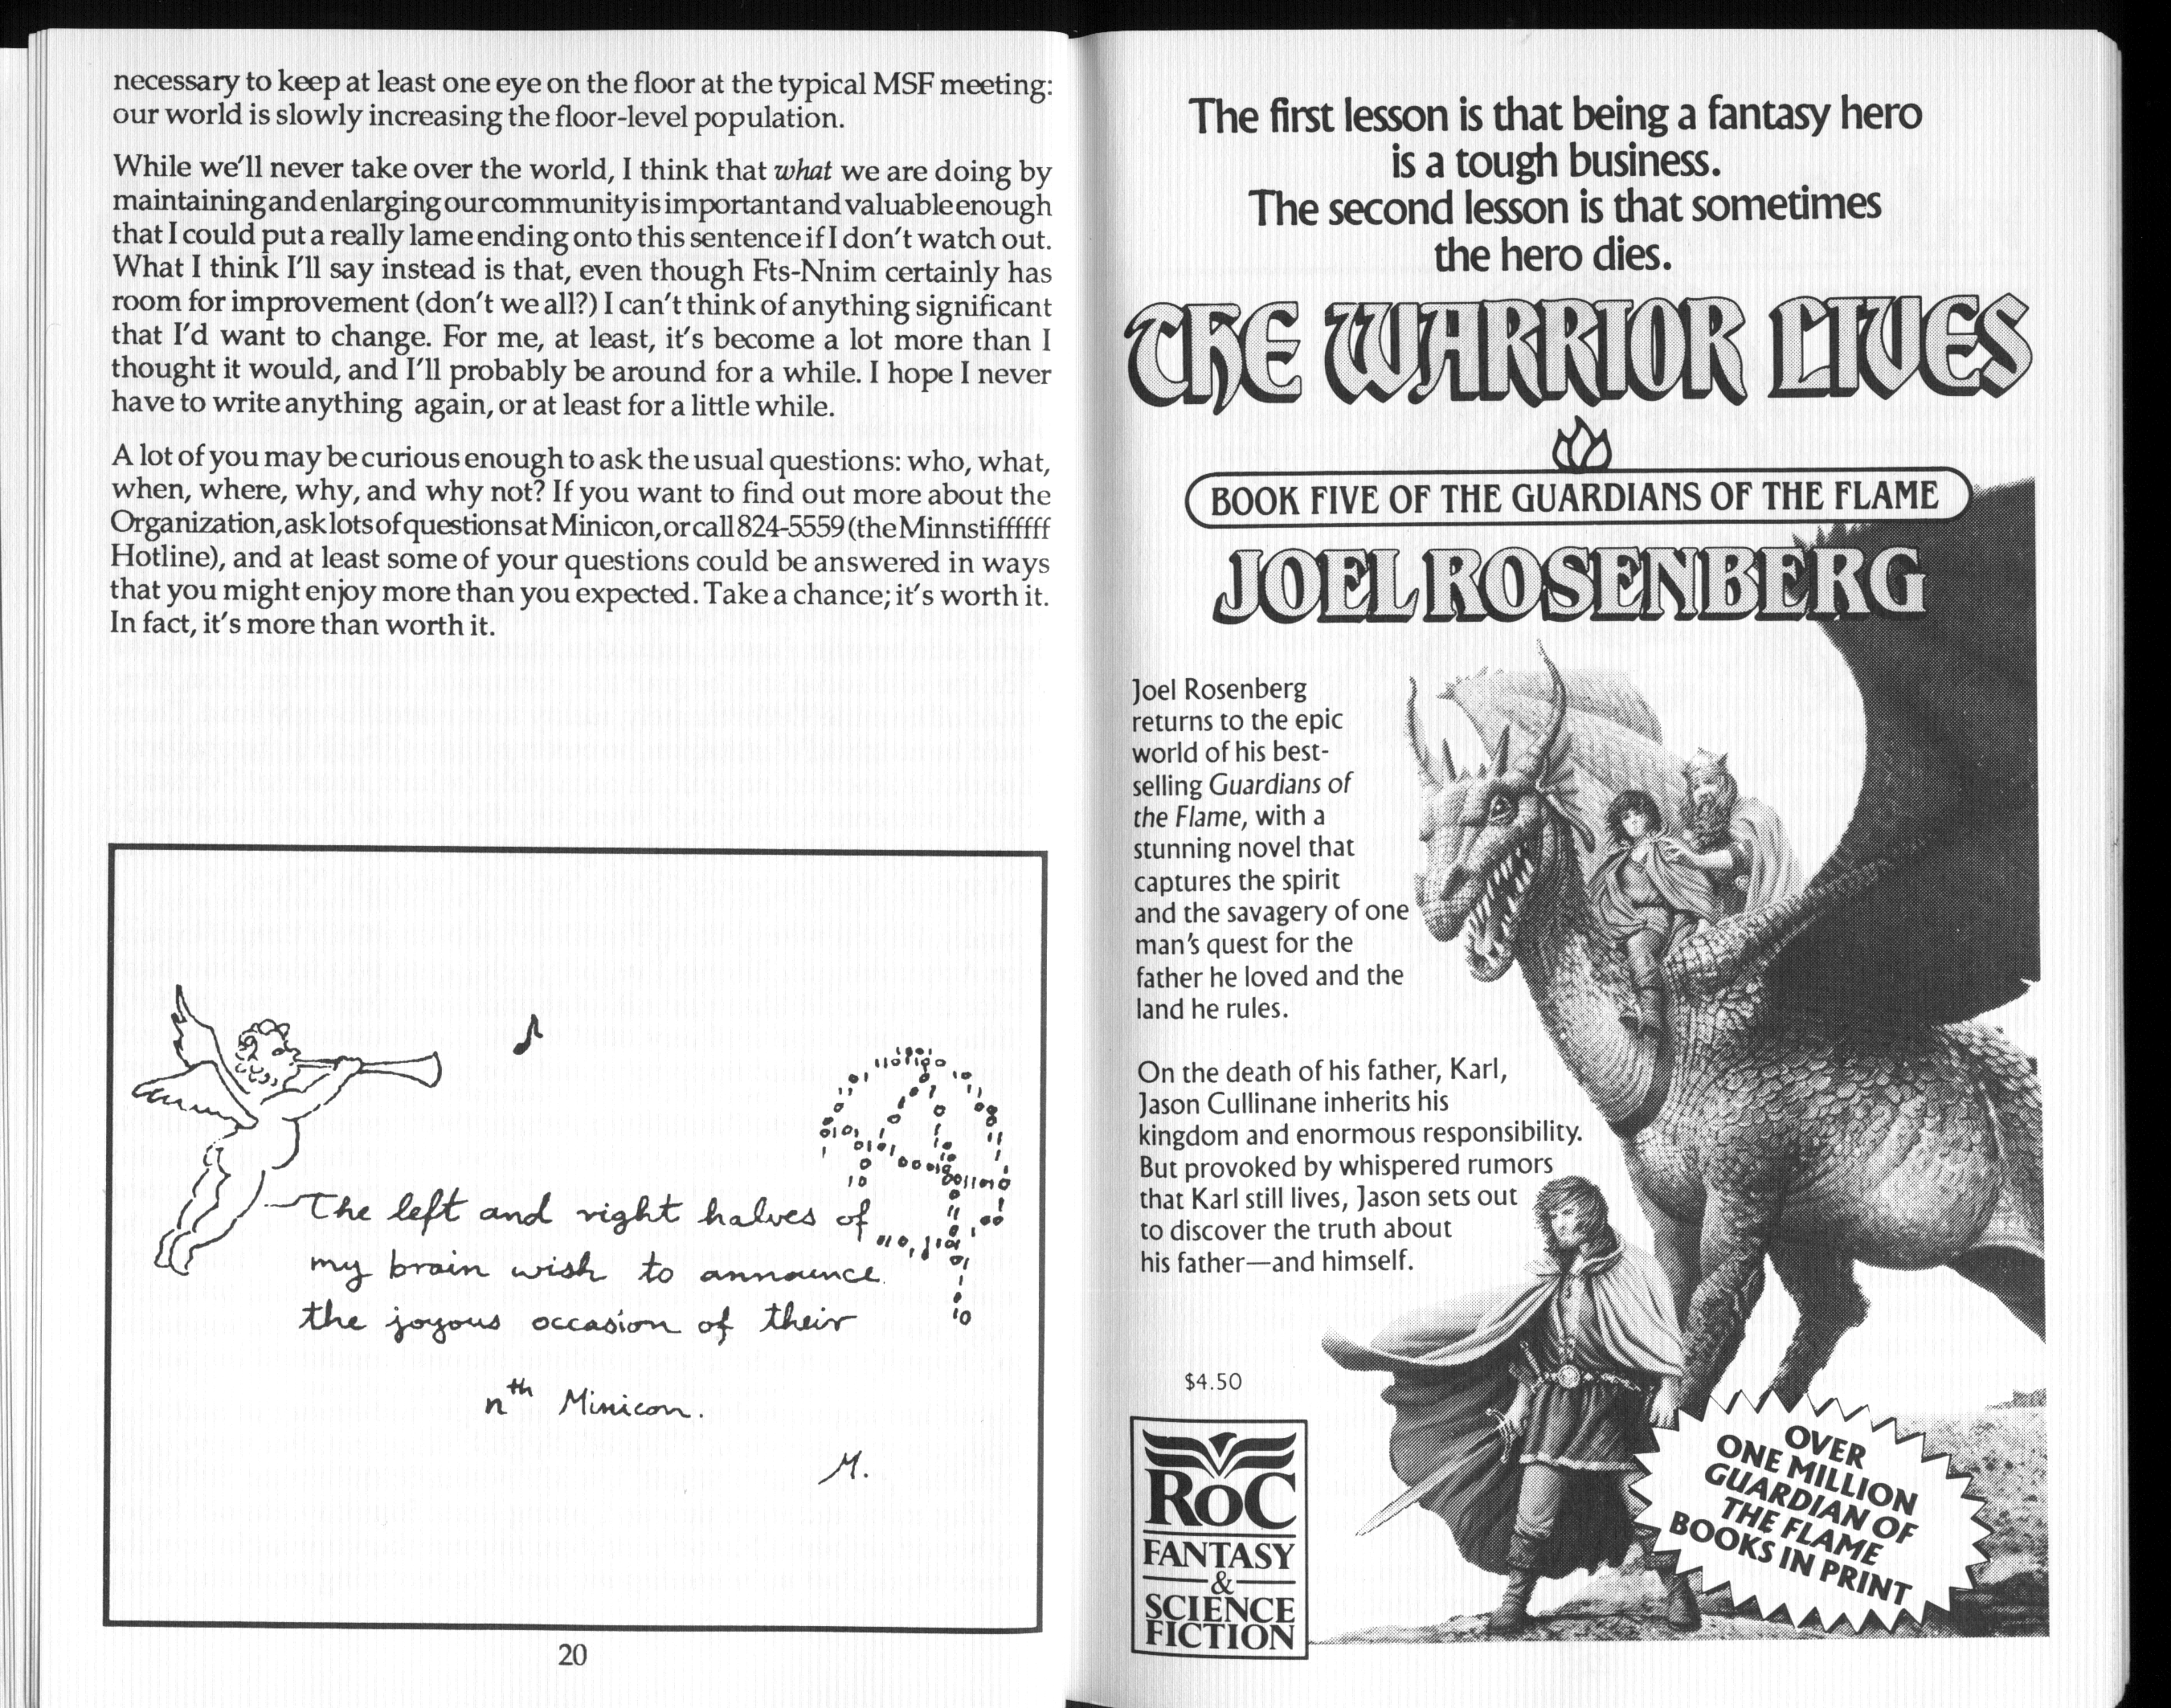 necessary to keep at least one eye on the floor at the typical MSF meeting:
our world is slowly increasing the floor-level population.
While we'll never take over the world, I think that what we are doing by
maintaining and enlarging our community is important and valuable enough
that I could put a really lame ending onto this sentence if I don't watch out.
What I think I'll say instead is that, even though Fts-Nnim certainly has
room for improvement (don't we all?) I can't think of anything significant
that I'd want to change. For me, at least, it's become a lot more than I
thought it would, and I'll probably be around for a while. I hope I never
have to write anything again, or at least for a little while.
A lot of you may be curious enough to ask the usual questions: who, what,
when, where, why, and why not? If you want to find out more about the
Organization, ask lots of questions at Minicon, or call 824-5559 (the Minnstiffffff
Hotline), and at least some of your questions could be answered in ways
that you might enjoy more than you expected. Take a chance; it's worth it.
In fact, it's more than worth it.
The left and right halves of
my brain wish to announce
the joyous occasion of their
nth Minicon.
M.
20
The first lesson is that being a fantasy hero
is a tough business.
The second lesson is that sometimes
the hero dies.
THE WARRIOR LIVES
BOOK FIVE OF THE GUARDIANS OF THE FLAME
JOEL ROSENBERG
Joel Rosenberg
returns to the epic
world of his best-
selling Guardians of
the Flame, with a
stunning novel that
captures the spirit
and the savagery of one
man's quest for the
father he loved and the
land he rules.
On the death of his father, Karl,
Jason Cullinane inherits his
kingdom and enormous responsibility.
But provoked by whispered rumors
that Karl still lives, Jason sets out
to discover the truth about
his father—and himself.
$4.50
ROC
FANTASY
&
SCIENCE
FICTION
OVER
ONE MILLION
GUARDIAN OF
THE FLAME
BOOKS IN PRINT